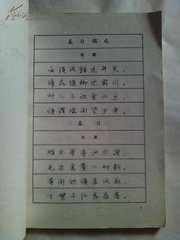 春日偶成
程颢
云淡风轻近午天，
傍花随柳过前川。
时人不识余心乐，
将谓偷闲学少年。
春日
朱熹
胜日寻芳泗水滨，
无边光景一时新。
等闲识得东风面，
万紫千红总是春。